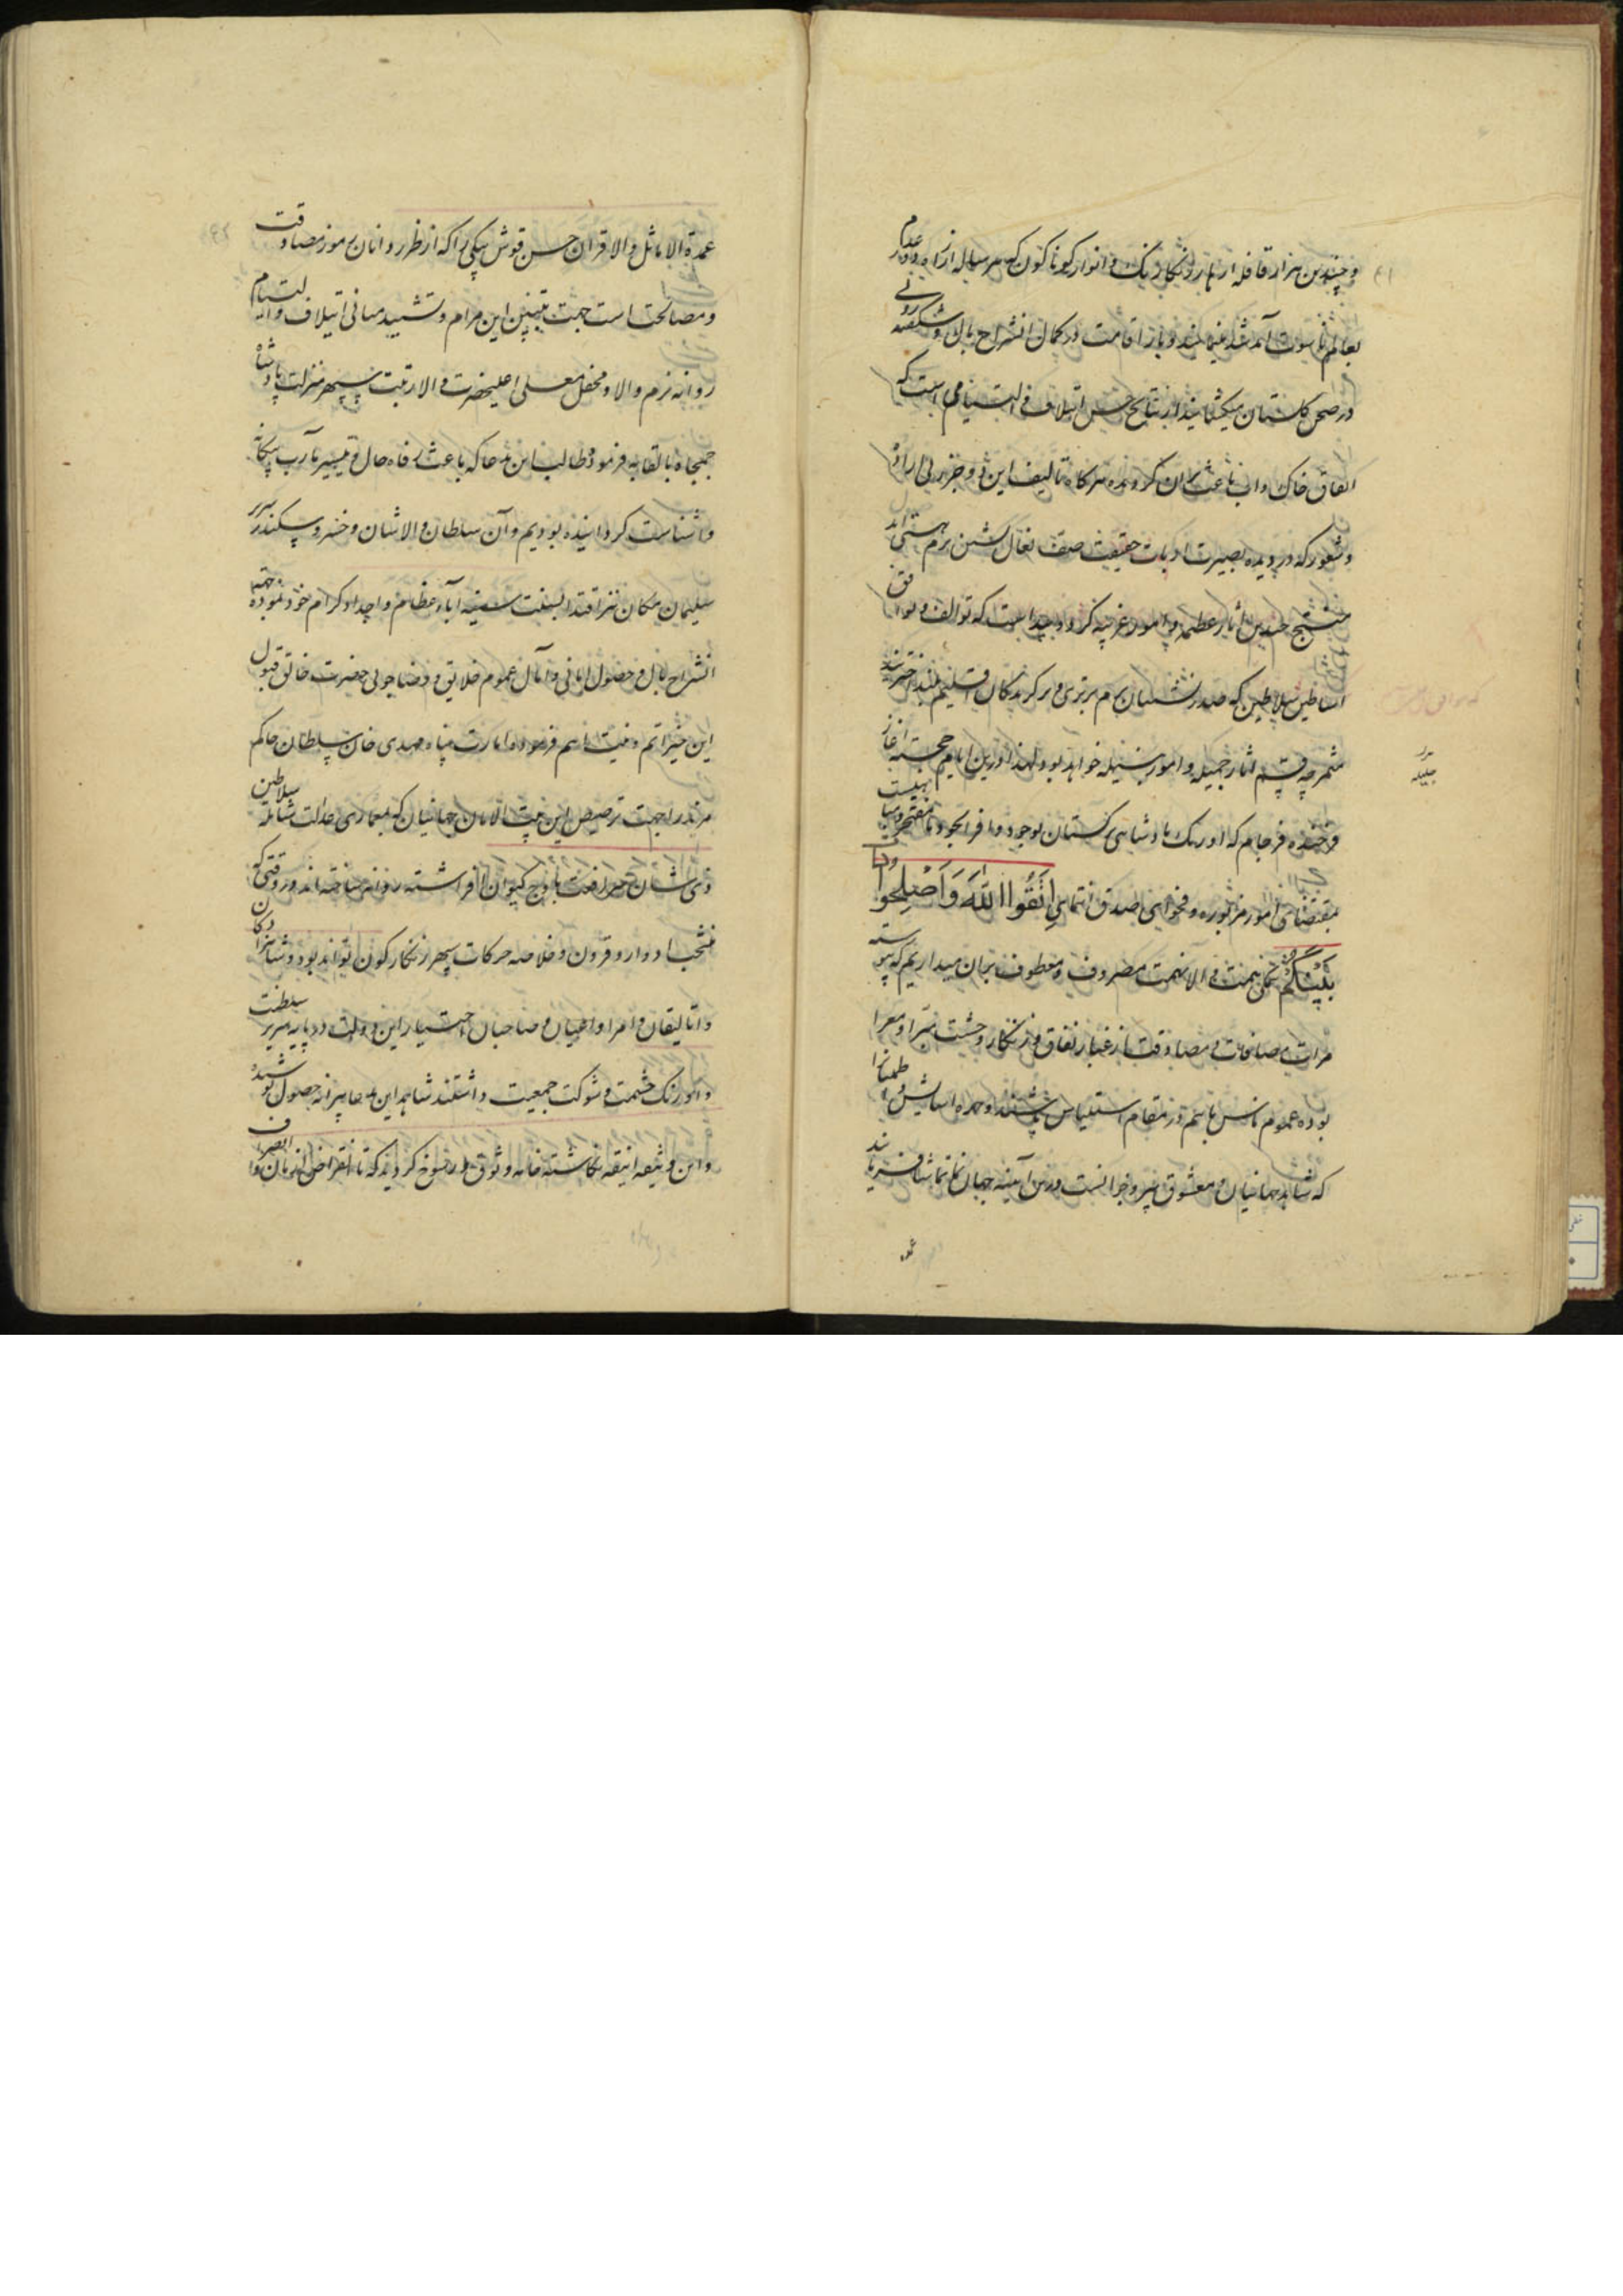 و چندین هزار قافله ازهار رنگارنگ و انوار گوناگون که هر ساله از راه دور عدم
بعالم ناسوت آمد شد مینمایند و بار اقامت در کمال انشراح بال و شکفته روئی
در صحن گلستان میگشایند از نتایج حسن ایتلاف و التیامی است که
اتفاق خاک و آب باعث آن گردیده هرگاه تالیف این دو جزو بی اراده
و شعور که در دیده بصیرت ارباب حقیقت صف نعال نشین بزم هستی اند
منتج چندین آثار عظیمه و امور غریبه گردد پیداست که توالف و توافق
اساطین سلاطین که صدرنشینان بزم برتری و برگزیدگان اقلیم بلند اخترند
مثمر چه قسم آثار جمیله و امور نبیله خواهد بود لهذا درین ایام خجسته آغاز
فرخنده فرجام که اورنگ پادشاهی گلستان بوجود وافر الجود ما مفتخر و مباهیست
بمقتضای امور مزبوره و فحوای صدق انتمای اِتَّقُوا اللّٰهَ وَاَصْلِحُوا ذات
بَیْنِکُمْ تمامی نهمت والا نهمت مصروف و معطوف بران میداریم که پیوسته
مرات مصافات و مصادقت از غبار نفاق و زنگار وحشت مبرا و معرا
بوده عموم ناس باسم در مقام استیناس
که شاهد جهانیان و معشوق پیر و جوانست درین آینه جهان نما تماشا فرمایند
جلیله
عمده
عمدة الاماثل والاقران حسن قوش بیگی را که از طرز دانان رموز مصادقت
و مصالحت است جهت تبیین این مرام و تشیید مبانی ایتلاف و التیام
روانه بزم والا و محفل معلی اعلیحضرت والا رتبت سپهر منزلت پادشاه
جمجاه بالقابه فرموده طالب این مدعا که باعث رفاه حال و تیسیر مآرب بیگانه
و آشناست گردانیده بودیم و آن سلطان والاشان و خسرو سکندر سریر
سلیمان مکان نیز اقتدا بسنت سنیه آباء عظام و اجداد کرام خود نموده جهته
انشراح بال و حصول امانی و آمال عموم خلایق و رضاجوئی حضرت خالق قبول
این خیر اتم و نیت اهم فرموده امارت پناه مهدی خان سلطان حاکم
مرند را جهت ترصیص این بیت الامان جهانیان که بمعماری عدالت شامله سلاطین
ذی شان سر رفعت باوج کیوان افراشته روانه ساخته اند در وقتی که
منتخب ادوار و قرون و خلاصه حرکات سپهر زنگارگون تواند بود و شاهزادگان
و اتالیقان و امرا و اعیان و صاحبان اختیار این دولت در پایه سریر سلطنت
و اورنگ حشمت و شوکت جمعیت داشتند شاهد این مدعا پیرایه حصول پوشیده
و این وثیقه انیقه نگاشته خامه وثوق و رسوخ گردید که تا انقراض زمان و انصراف